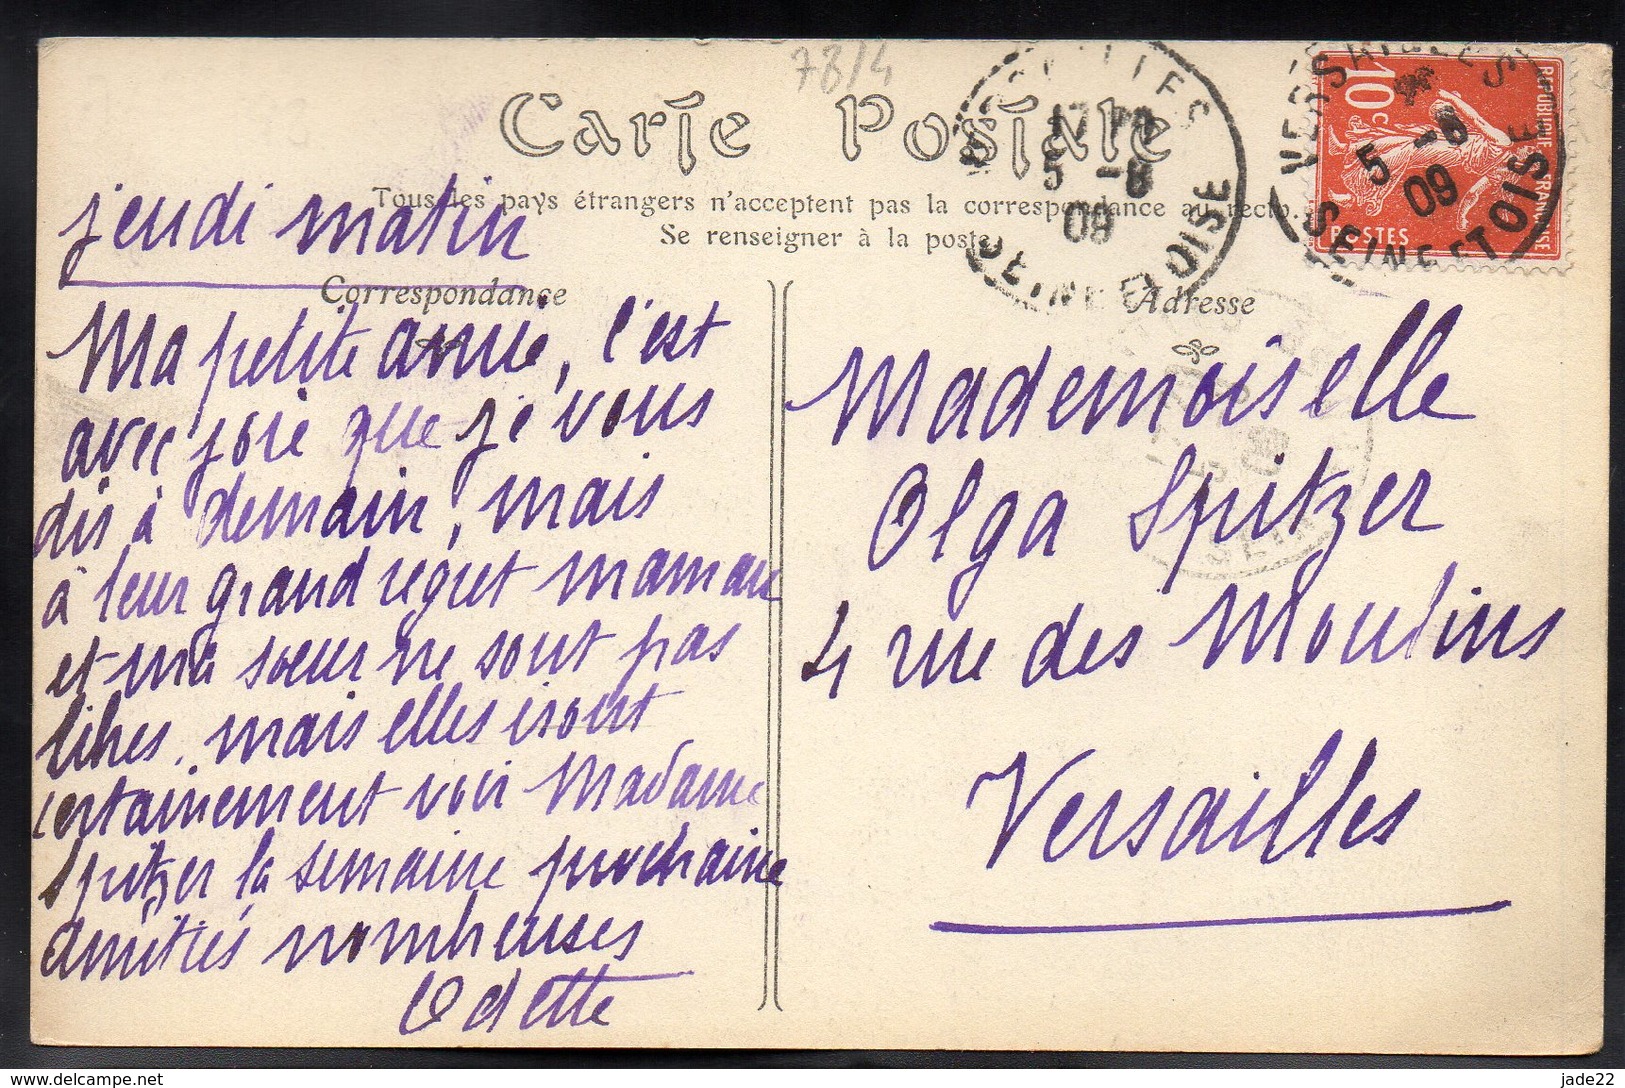 78/4
Carte Postale
Tous les pays étrangers n'acceptent pas la correspondance au recto.
Se renseigner à la poste
jeudi matin
Correspondance
Ma petite amie, c'est
avec joie que je vous
dis à demain, mais
à leur grand regret maman
et ma sœur ne sont pas
libres, mais elles iront
certainement voir Madame
Spitzer la semaine prochaine
amitiés nombreuses
Odette
Adresse
Mademoiselle
Olga Spitzer
4 rue des Moulins
Versailles
VERSAILLES
5 -8
09
SEINE ET OISE
10c
REPUBLIQUE FRANÇAISE
POSTES
5 -8
09
SEINE ET OISE
www.delcampe.net
jade22